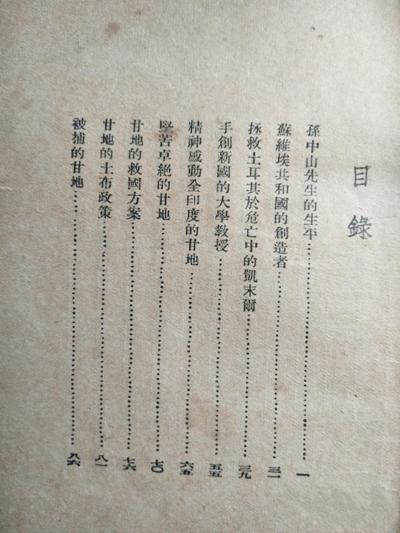 目錄
孫中山先生的生平……一
蘇維埃共和國的創造者……三一
拯救土耳其於危亡中的凱末爾……三九
手創新國的大學教授……五五
精神感動全印度的甘地……六五
堅苦卓絕的甘地……七〇
甘地的救國方案……七六
甘地的土布政策……八一
被捕的甘地……八六